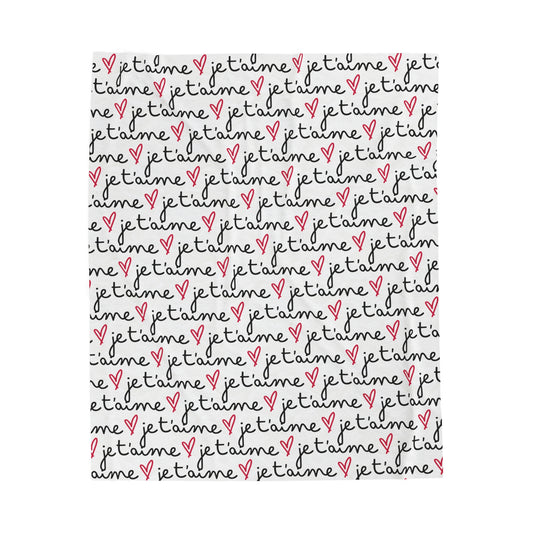 je t'aime je t'aime je t'aime
je t'aime je t'aime je t'aime
je t'aime je t'aime je t'aime
je t'aime je t'aime je t'aime
je t'aime je t'aime je t'aime
je t'aime je t'aime je t'aime
je t'aime je t'aime je t'aime
je t'aime je t'aime je t'aime
je t'aime je t'aime je t'aime
je t'aime je t'aime je t'aime
je t'aime je t'aime je t'aime
je t'aime je t'aime je t'aime
je t'aime je t'aime je t'aime
je t'aime je t'aime je t'aime
je t'aime je t'aime je t'aime
je t'aime je t'aime je t'aime
je t'aime je t'aime je t'aime
je t'aime je t'aime je t'aime
je t'aime je t'aime je t'aime